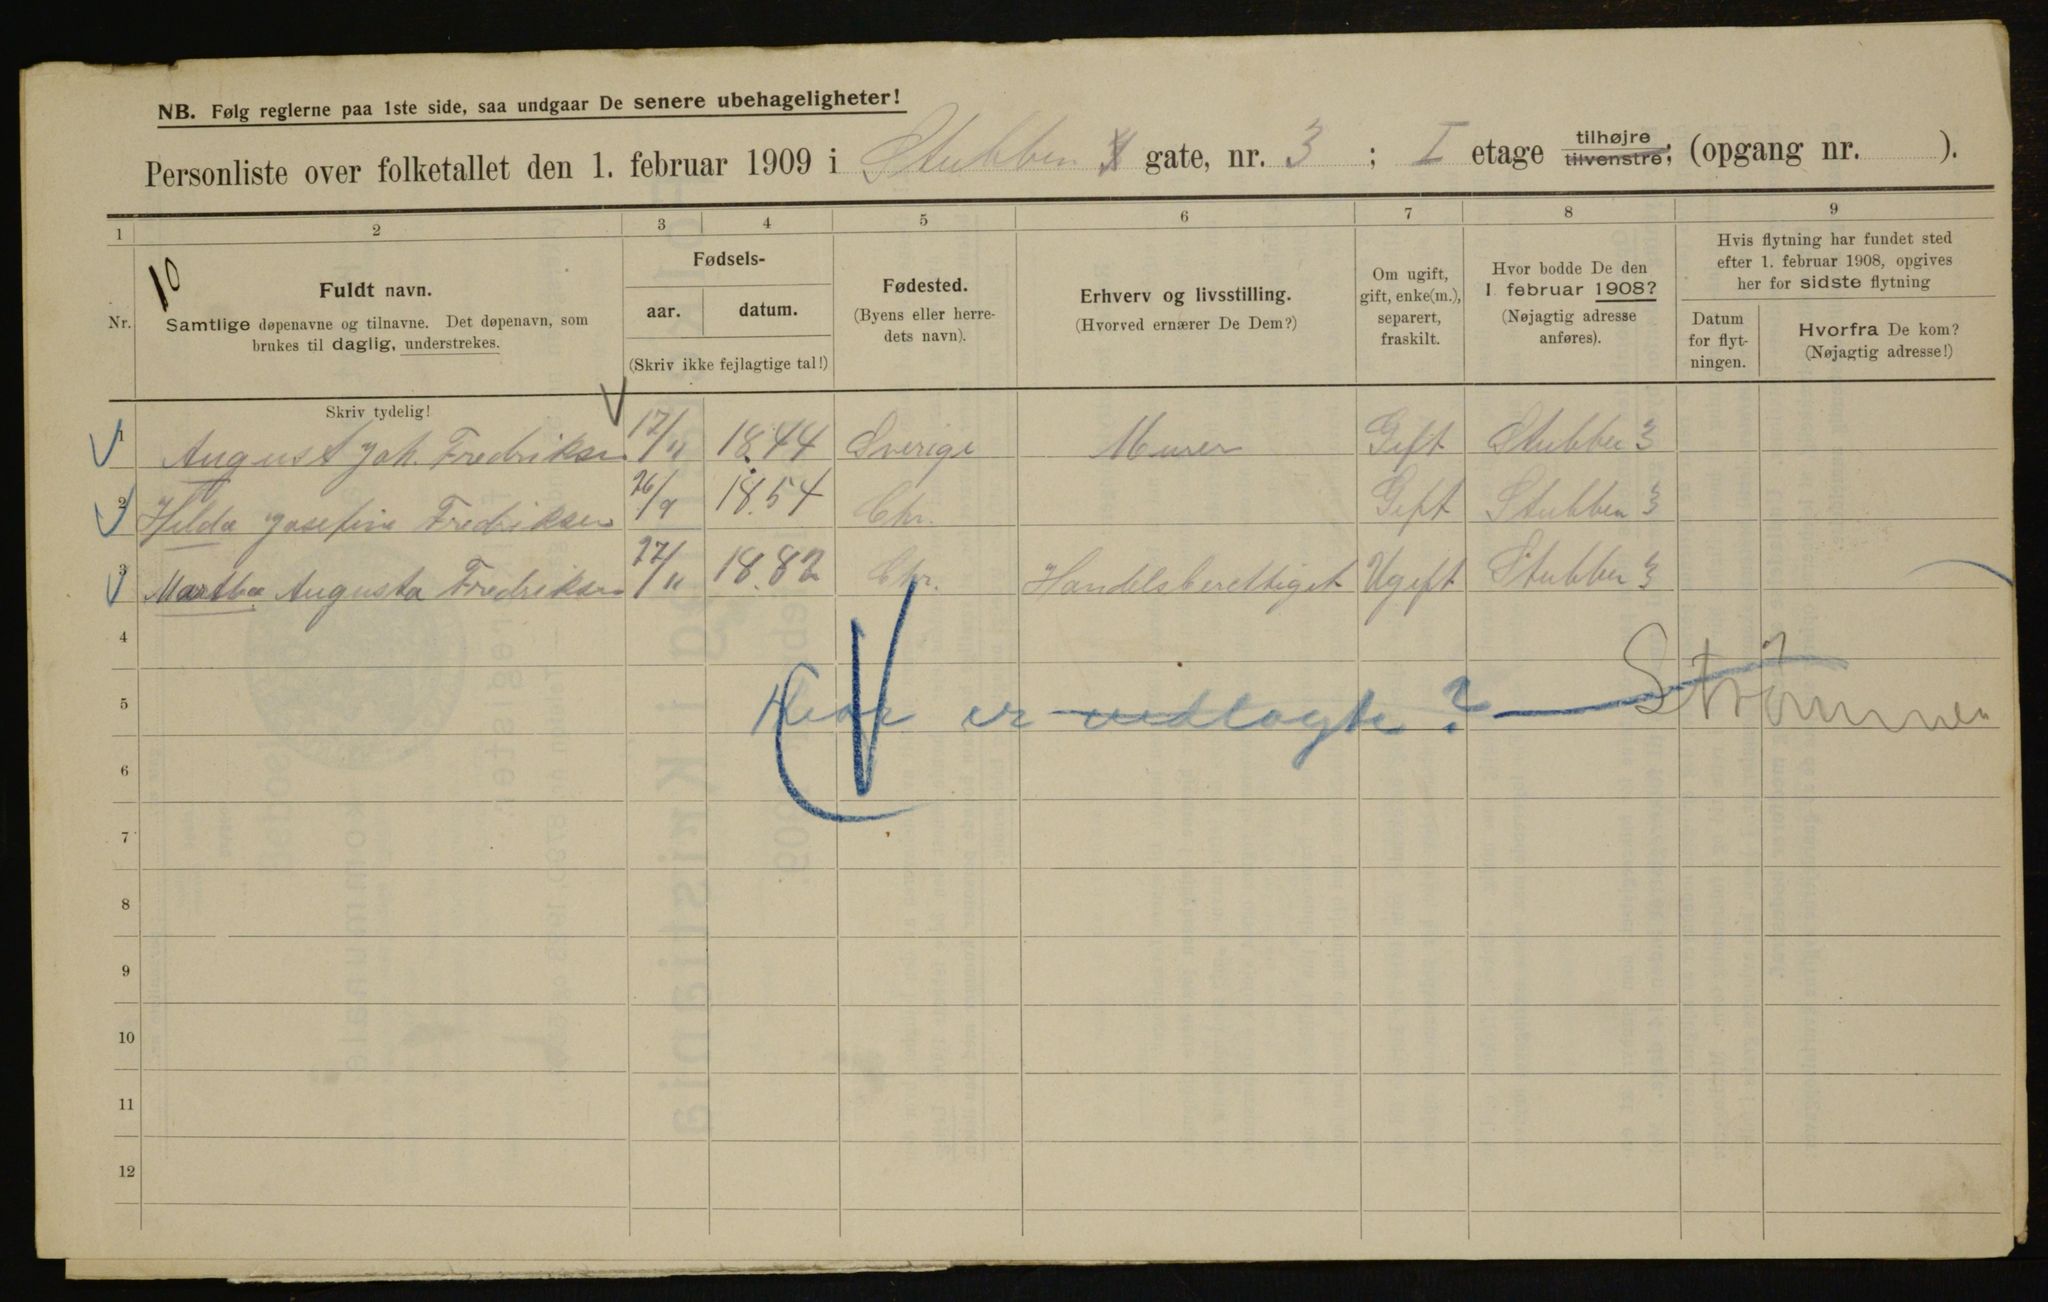 NB. Følg reglerne paa 1ste side, saa undgaar De senere ubehageligheter!
Personliste over folketallet den 1. februar 1909 i Stubben gate, nr. 3 ; I etage tilhøjre tilvenstre; (opgang nr. ).
1 2 3 4 5 6 7 8 9
10
Nr.
Fuldt navn.
Samtlige døpenavne og tilnavne. Det døpenavn, som
brukes til daglig, understrekes.
Fødsels-
aar. datum.
(Skriv ikke fejlagtige tal!)
Fødested.
(Byens eller herre-
dets navn).
Erhverv og livsstilling.
(Hvorved ernærer De Dem?)
Om ugift,
gift, enke(m.),
separert,
fraskilt.
Hvor bodde De den
1 februar 1908?
(Nøjagtig adresse
anføres).
Hvis flytning har fundet sted
efter 1. februar 1908, opgives
her for sidste flytning
Datum
for flyt-
ningen.
Hvorfra De kom?
(Nøjagtig adresse!)
Skriv tydelig!
1 August Joh. Fredriksen 17/11 1844 Sverige Murer Gift Stubben 3
2 Hilda Josefine Fredriksen 26/9 1854 Chr. Gift Stubben 3
3 Martha Augusta Fredriksen 27/11 1882 Chr. Handelsberettiget Ugift Stubben 3
4
5 er vedlagte? Strømmen
6
7
8
9
10
11
12